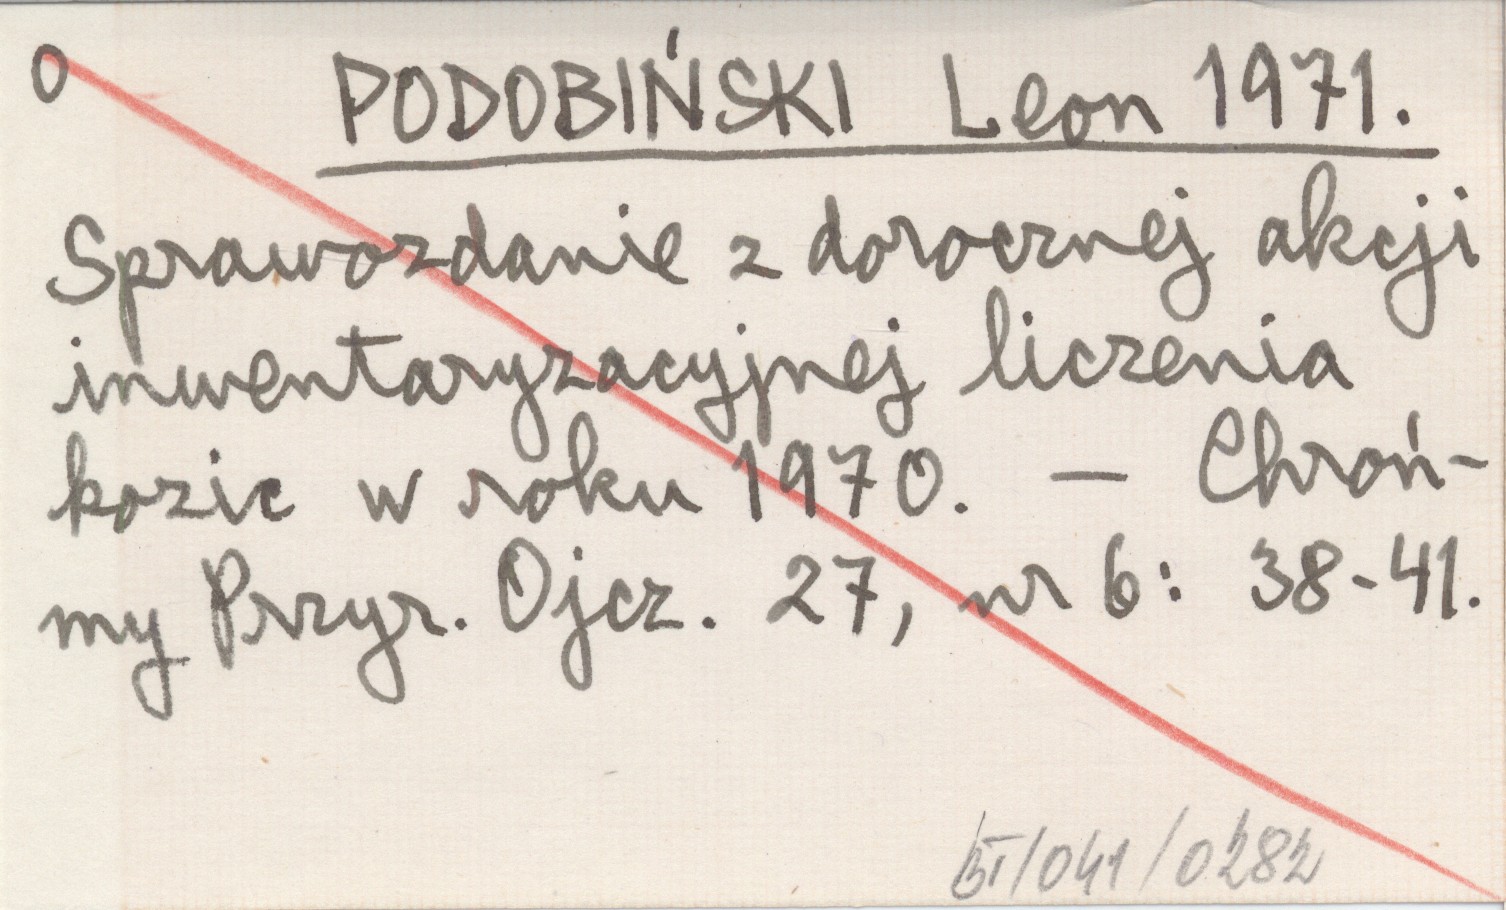 O PODOBIŃSKI Leon 1971.
Sprawozdanie z dorocznej akcji
inwentaryzacyjnej liczenia
kozic w roku 1970. — Chroń-
my Przyr. Ojcz. 27, nr 6: 38-41.
BI/041/0282